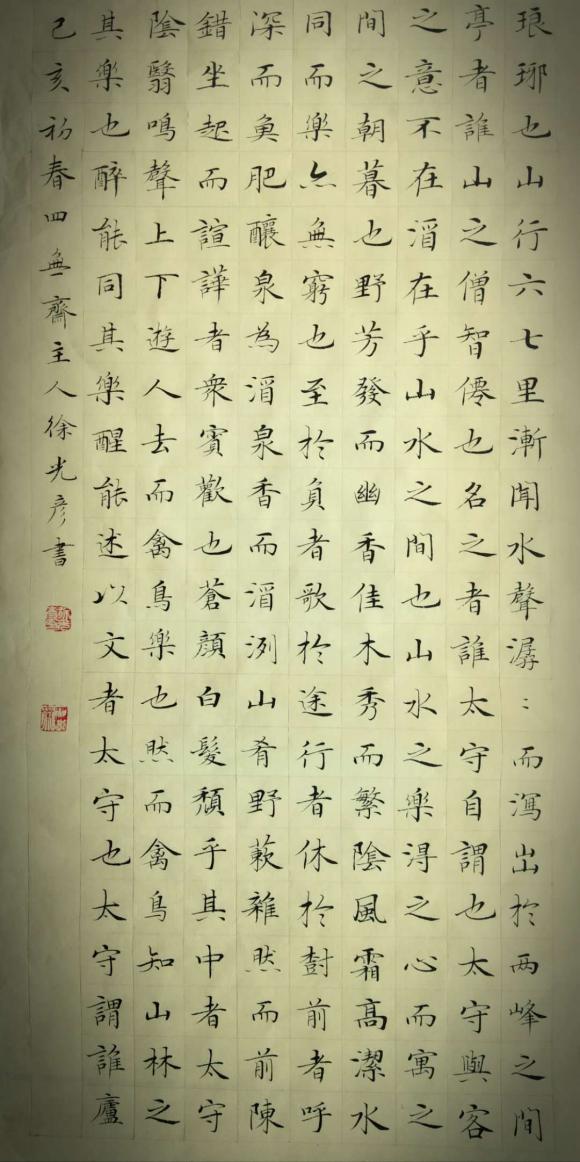 琅琊也山行六七里漸聞水聲潺〻而瀉出於两峰之間
亭者誰山之僧智僊也名之者誰太守自謂也太守與客
之意不在酒在乎山水之間也山水之樂得之心而寓之
間之朝暮也野芳發而幽香佳木秀而繁陰風霜高潔水
同而樂亦無窮也至於負者歌於途行者休於樹前者呼
深而魚肥釀泉為酒泉香而酒洌山肴野蔌雜然而前陳
錯坐起而諠譁者衆賓歡也蒼顏白髮頹乎其中者太守
陰翳鳴聲上下遊人去而禽鳥樂也然而禽鳥知山林之
其樂也醉能同其樂醒能述以文者太守也太守謂誰廬
己亥初春四無齋主人徐光彦書